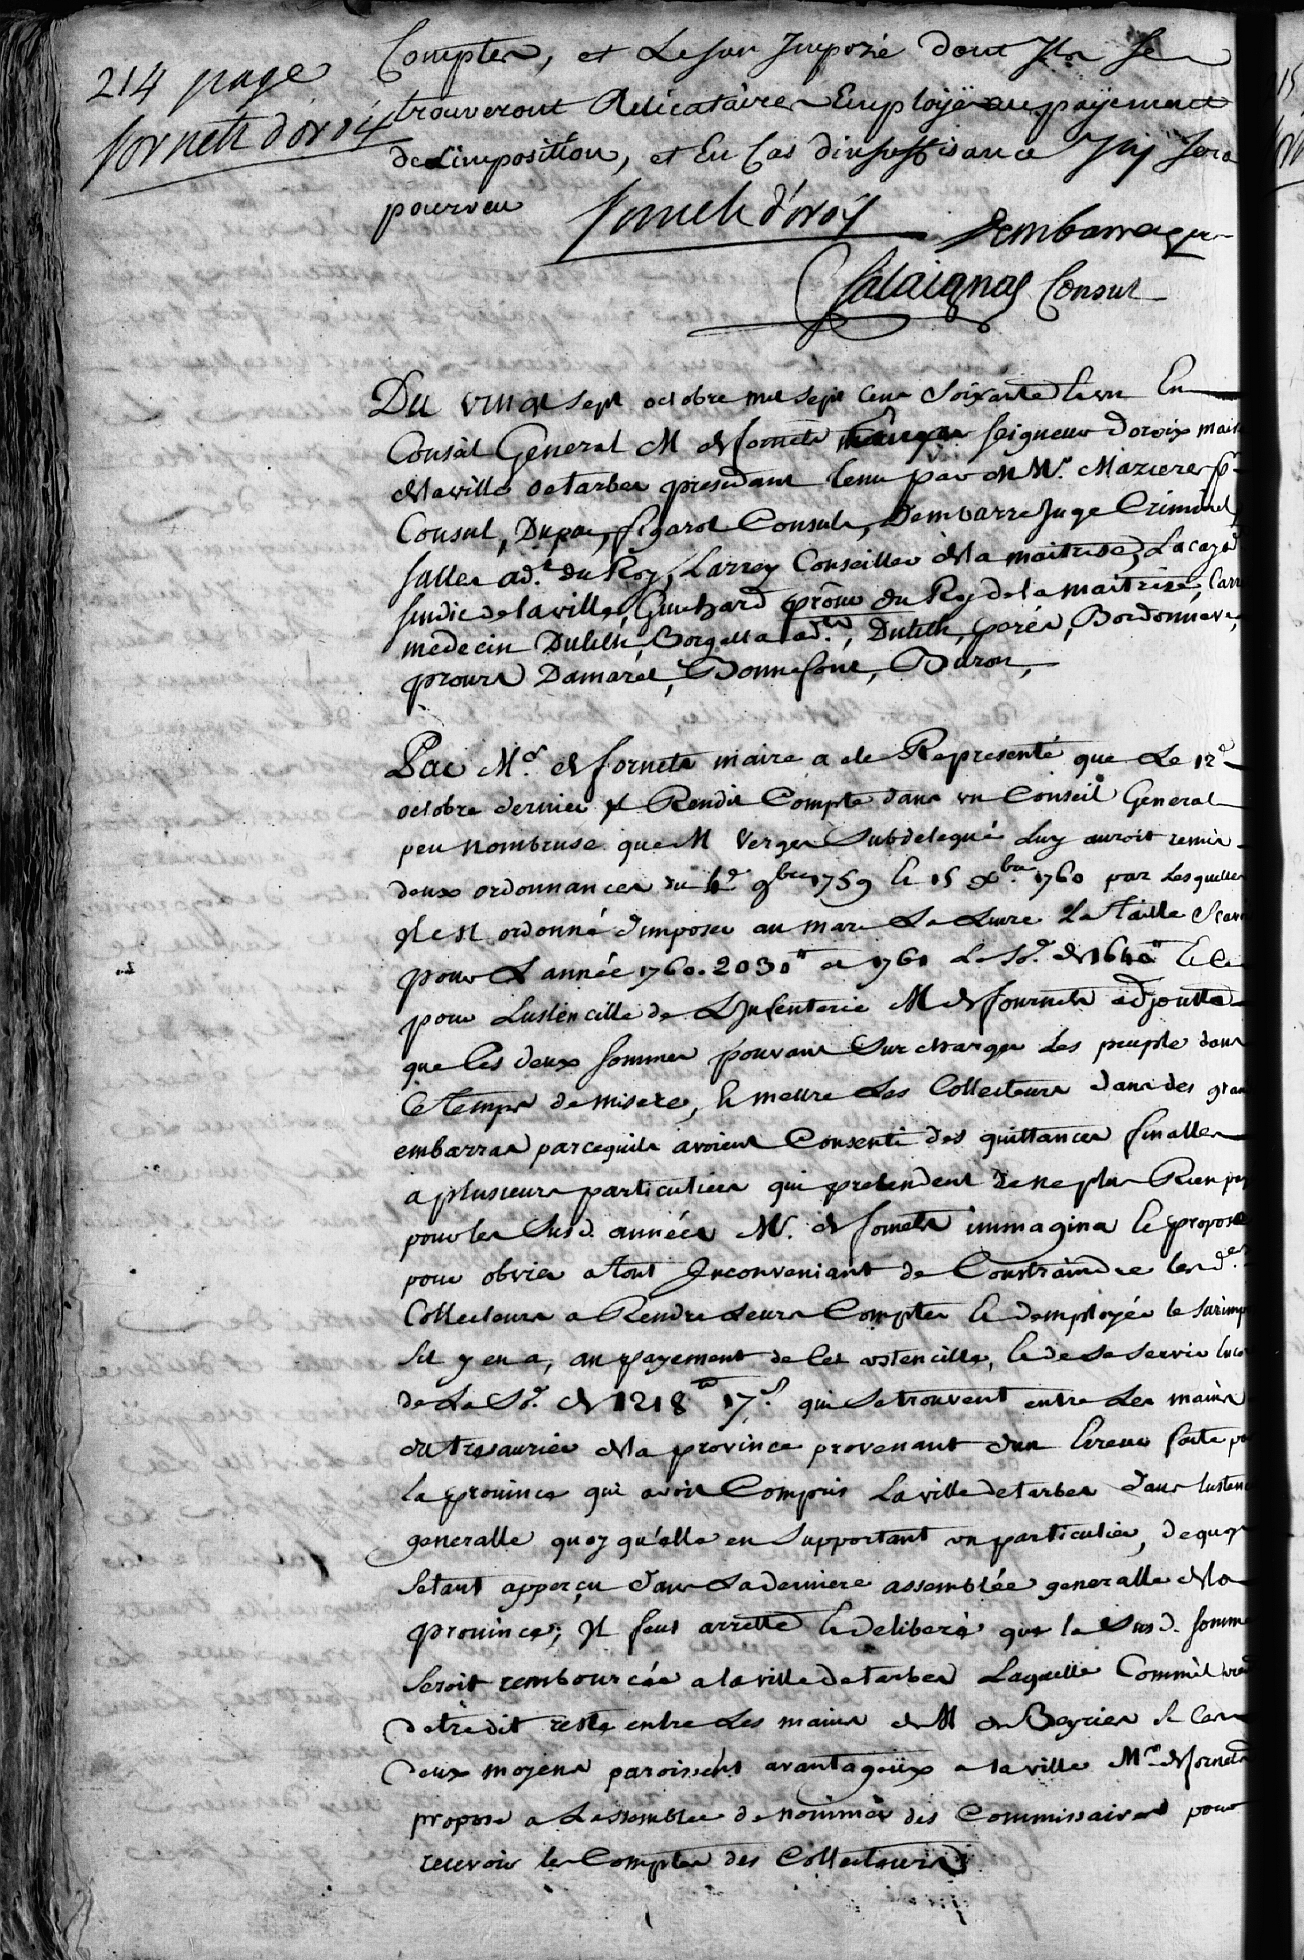 214 page
fornets d'oroix
Comptes, et Le sur Imposé dont Ils se
trouveront Relicataires Employé au payement
de L'imposition, et En Cas d'insuffisance Jl y sera
pourveu
fornets d'oroix Dembarrere
Salaignac Consul
Du vingt sept octobre mil sept cens soixante un En
Conseil General M de fornets seigneur doroix maire
de la ville de tarbes president tenu par M Mr. Maziere pr.
Consul, Dupac, figarol Consuls, Dembarre Juge Criminel
salles ad.t du Roy, Larrey Conseiller de la maitrise, Lacaze
sindic de la ville, Guichard procur du Roy de la maitrise, Larrey
medecin Duleth, Borgella ad.ts, Duleth, perés, Bordonnave,
procurs Damaret, Bonnefont, Buron,
Par Mr. de fornets maire a ete Representé que Le 12e
octobre dernier Jl Rendit Compte dans un Conseil General
peu nombruse que M Verges Subdelegué Luy auroit remis
deux ordonnances du 9bre 1759 et 15 xbre 1760 par Lesquelles
Jl est ordonné d'imposer au marc La Livre La Taille
pour L'année 1760. 2030tt et 1761 La So. de
pour Lustencille de L'Infenterie M de fournets adjoutta
que les deux sommes pouvant Surcharger Les peuple dans
Ce temps de misere, et mettre Les Collecteurs dans des gran
embarras parcequils avoient Consenti des quittances finalles
a plusieurs particuliers qui pretendent de ne plus Rien pay
pour les Susd. années Mr. de fornets immagina et proposa
pour obvier a tout Inconveniant de Constraindre les d.es
Collecteurs a Rendre Leurs Comptes et demployer le surimp
sil y en a, au payement de Cet ustencille, et de se servir enco
de La So. de 1218tt 17s. qui se trouvent entre Les mains
du tresaurier de la province provenant dun erreur faite pa
la province qui avoit Compris La ville de tarbes dans lustenc
generalle quoy qu'elle en Supportant un particulier, de quoy
setant apperçu dans La derniere assemblée generalle de la
province; Jl feut arretté et deliberé que la Susd. somme
seroit rembourcée a la ville de tarbes Laquelle Comme
detredit reste entre Les mains de M de Beyries et Ces
deux moyens paroissent avantageux a la ville Mr de fornets
propose a Lassemblée de nommer des Commissaires pour
recevoir les Comptes des Collecteurs